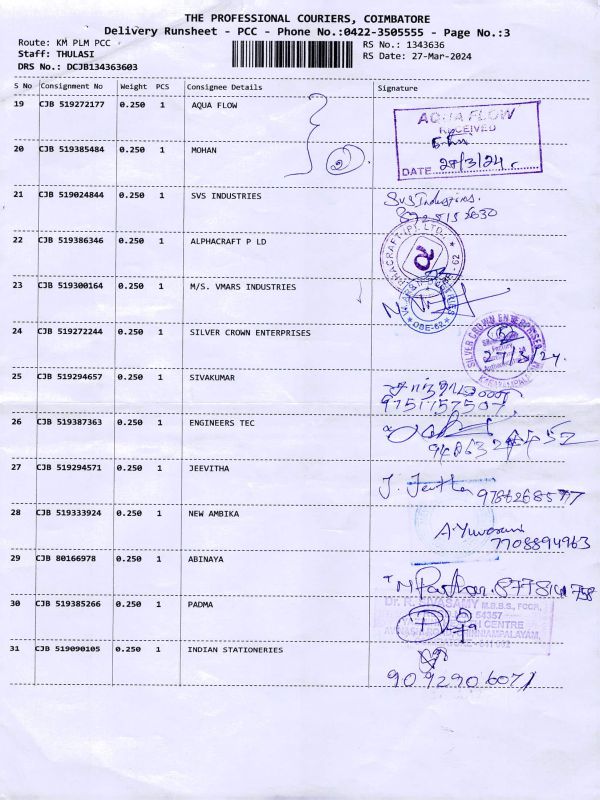 THE PROFESSIONAL COURIERS, COIMBATORE
Delivery Runsheet - PCC - Phone No.:0422-3505555 - Page No.:3
Route: KM PLM PCC
RS No.: 1343636
Staff: THULASI
RS Date: 27-Mar-2024
DRS No.: DCJB134363603
S No Consignment No Weight PCS Consignee Details Signature
19 CJB 519272177 0.250 1 AQUA FLOW
AQUA FLOW
RECEIVED
DATE 27/3/24
20 CJB 519385484 0.250 1 MOHAN
2
21 CJB 519024844 0.250 1 SVS INDUSTRIES
SVS Industries.
22 CJB 519386346 0.250 1 ALPHACRAFT P LD
23 CJB 519300164 0.250 1 M/S. VMARS INDUSTRIES
24 CJB 519272244 0.250 1 SILVER CROWN ENTERPRISES
SILVER CROWN ENTERPRISES
27/3/24.
25 CJB 519294657 0.250 1 SIVAKUMAR
9751157507
26 CJB 519387363 0.250 1 ENGINEERS TEC
27 CJB 519294571 0.250 1 JEEVITHA
J. Jeevitha
28 CJB 519333924 0.250 1 NEW AMBIKA
A.Yuvarani
7708894963
29 CJB 80166978 0.250 1 ABINAYA
30 CJB 519385266 0.250 1 PADMA
M.B.B.S., FCCR,
54357
CENTRE
31 CJB 519090105 0.250 1 INDIAN STATIONERIES
9092906071